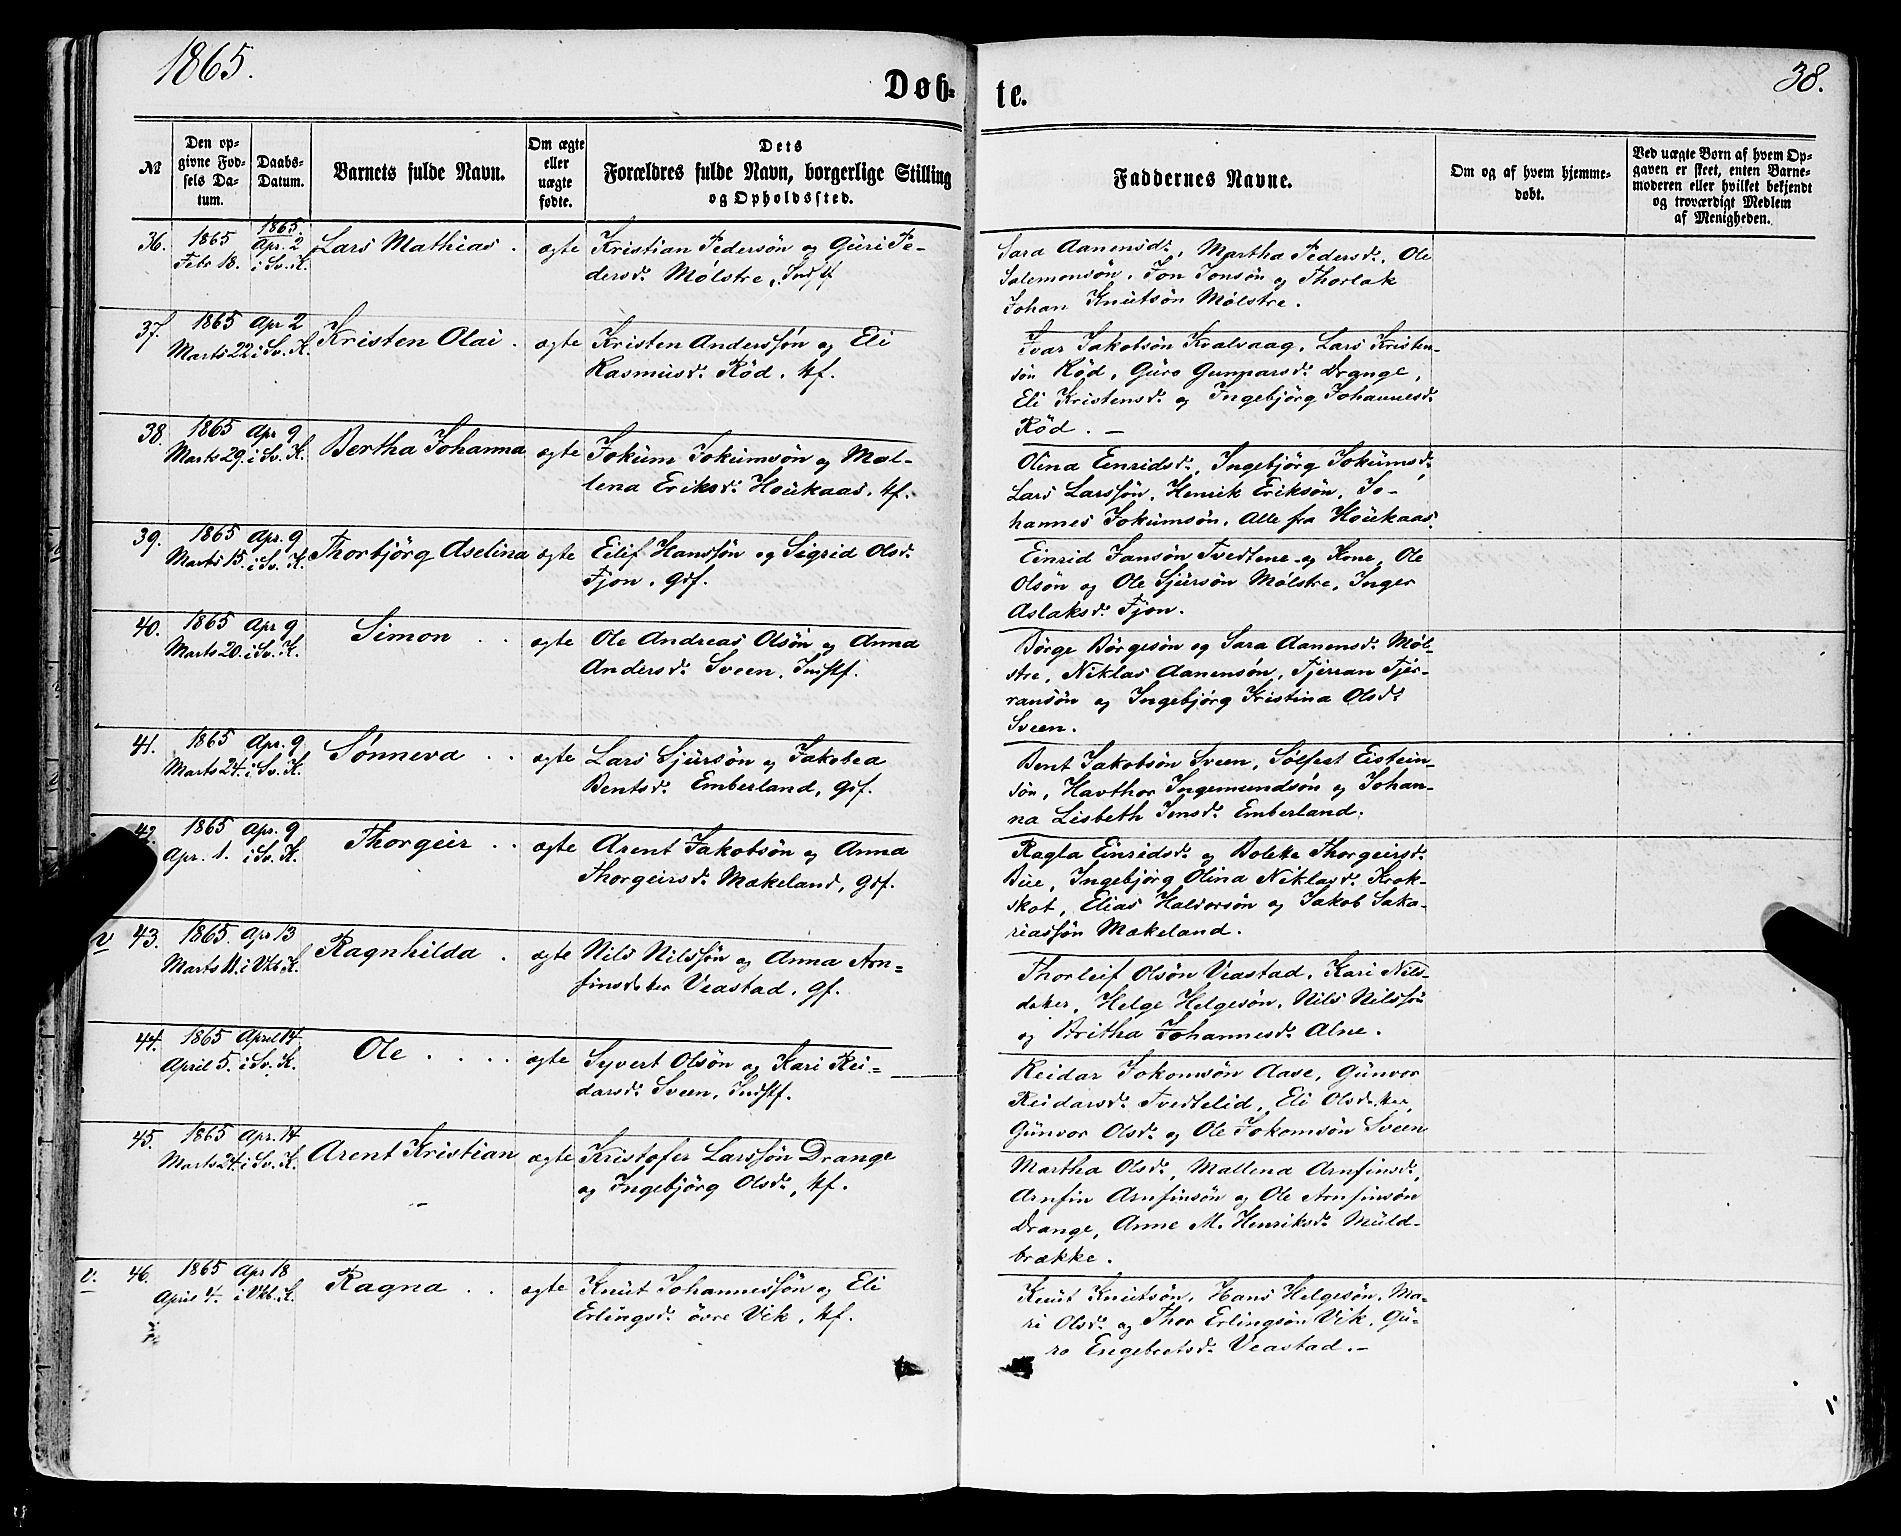 1865.
38.
Døb-
te.
№
Den op-
givne Fød-
sels Da-
tum.
Daabs-
Datum.
Barnets fulde Navn.
Om ægte
eller
uægte
fødte.
Dets
Forældres fulde Navn, borgerlige Stilling
og Opholdssted.
Faddernes Navne.
Om og af hvem hjemme-
døbt.
Ved uægte Børn af hvem Op-
gaven er skeet, enten Barne-
moderen eller hvilket bekjendt
og troværdigt Medlem
af Menigheden.
36. 1865 Febr 18. 1865. Apr. 2 i Sv. K. Lars Mathias . ægte
Kristian Pedersön og Guri Pe-
dersd. Mølstre, Indst
Sara Aanensd., Martha Pedersd., Ole
Salemonsön, Jon Jonsön og Thorlak
Johan Knutsön Mølstre.
37. 1865 Marts 22 Apr 2 i Sv. K. Kristen Olai . ægte
Kristen Anderssön og Eli
Rasmusd. Röd, kf.
Ivar Jakobsön Kvalvaag, Lars Kristen-
sön Röd, Guro Gunnarsd. Drange,
Eli Kristensd. og Ingebjörg Johannesd.
Röd. -
38. 1865 Marts 29. Apr 9 i Sv. K. Bertha Johanna ægte
Jokum Jokumsön og Mal-
lena Eriksd. Houkaas, kf.
Olina Einridsd., Ingebjörg Jokumsd.,
Lars Larssön, Henrik Eriksön, Jo-
hannes Jokumsön, Alle fra Houkaas.
39. 1865 Marts 15. Apr. 9 i Sv. K. Thorbjörg Aselina ægte
Eilif Hanssön og Sigrid Olsd.
Fjon, gdf.
Einrid Jansön Tvedtene og Kone, Ole
Olsön og Ole Sjursön Mølstre, Inger
Aslaksd. Fjon.
40. 1865 Marts 20. Apr 9 i Sv. K. Simon . . ægte
Ole Andreas Olsön og Anna
Andersd. Sveen, Indstf.
Börge Börgesön og Sara Aanensd. Møl-
stre, Niklas Aanensön, Tjerran Tjer-
ransön og Ingebjörg Kristina Olsd.
Sveen.
41. 1865 Marts 24. Apr. 9 i Sv. K. Sönneva . . ægte
Lars Sjursön og Jakobea
Bentsd. Emberland, gdf.
Bent Jakobsön Sveen, Sølfest Eistein-
sön, Havthor Ingemundsön og Johan-
na Lisbeth Jensd. Emberland.
42. 1865 Apr. 1. Apr. 9 i Sv. K. Thorgeir . . ægte
Arent Jakobsön og Anna
Thorgeirsd. Mækeland, gdf.
Ragla Einridsd. og Bolette Thorgeirsd.
Bue, Ingebjörg Olina Niklasd. Krok-
skot, Elias Halvorsön og Jakob Saka-
riassön Mækeland.
v 43. 1865. Marts 11. Apr 13 i Vkb. K. Ragnhilda . ægte
Nils Nilssön og Anna Arn-
finsdatter Veastad, gf.
Thorleif Olsön Veastad, Kari Nils-
datter, Helge Helgesön, Nils Nilssön
og Britha Johannesd. Alne.
44. 1865 April 5. April 14 i Sv. K. Ole . . . . ægte
Syvert Olsön og Kari Rei-
darsd. Sveen, Indstf.
Reidar Jokomsön Aase, Gunvor
Reidarsd. Tvedtelid, Eli Olsdatter,
Gunvor Olsd. og Ole Jokomsön Sveen
45. 1865 Marts 24. Apr. 14 i Sv. K. Arent Kristian ægte
Kristofer Larssön Drange
og Ingebjörg Olsd., kf.
Martha Olsd., Mallena Arnfinsd.,
Arnfin Arnfinsön og Ole Arnfinsön
Drange, Anne M. Henriksd. Muld-
brække.
v. 46. 1865 April 4. Apr 18 i Vkb. K. Ragna . . ægte
Knut Johannessön og Eli
Erlingsd. övre Vik, kf.
Knut Knutsön, Hans Helgesön, Ma-
ri Olsd. og Thor Erlingsön Vik, Gu-
ro Engebretsd. Veastad. -